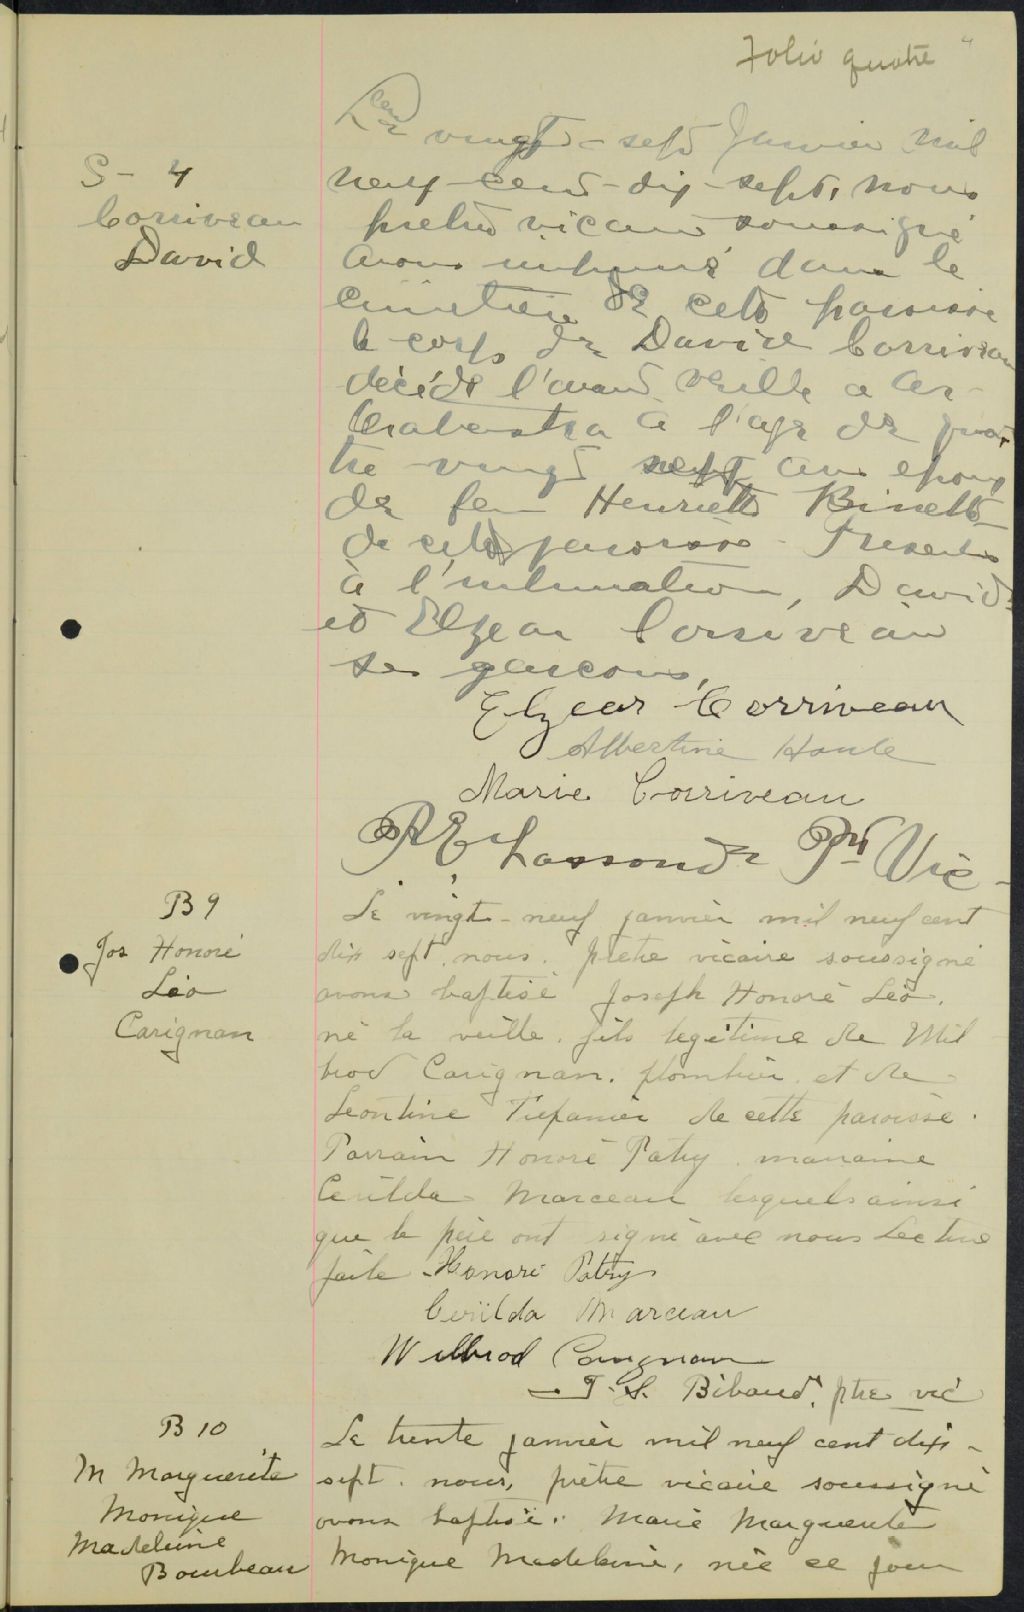 Folio quatre
S - 4
Corriveau
David
Le vingt - sept Janvier mil
neuf - cent - dix - sept, nous
pretre vicaire soussigné
avons inhumé dans le
cimetière de cette paroisse
le corps de David Corriveau
décédé l'avant veille a Ar-
thabaska à l'age de quat
tre vingt sept ans epoux
de feu Henriette Binette
de cette paroisse - Presents
à l'inhumation, David
et Elzear Corriveau
ses garcons,
Elzear Corriveau
Albertine Houle
Marie Corriveau
R E Lassonde Ptr Vic -
B 9
Jos Honoré
Léo
Carignan
Le vingt - neuf janvier mil neuf cent
dix sept, nous, prêtre vicaire soussigné
avons baptisé Joseph Honoré Léo,
né la veille, fils légitime de Wil
brod Carignan, plombier, et de
Léontine Trépanier de cette paroisse.
Parrain Honoré Patry, marraine
Cerilda Marceau lesquels ainsi
que le père ont signé avec nous Lecture
faite Honoré Patry
Cerilda Marceau
Wilbrod Carignan
J. S. Bibaud, ptre vic
B 10
M Marguerite
Monique
Madeleine
Bourbeau
Le trente janvier mil neuf cent dix -
sept, nous, prêtre vicaire soussigné
avons baptisé Marie Marguerite
Monique Madeleine, née ce jour